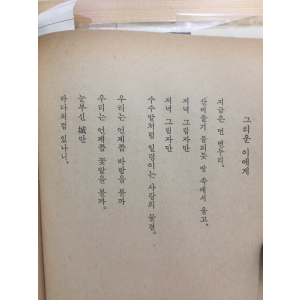 그리운 이에게
지금은 먼 변두리.
산비둘기 몰리듯 밭 속에서 울고,
저녁 그림자만
저녁 그림자만
수수밭처럼 일렁이는 사랑의 물결.
우리는 언제쯤 바람을 볼까
우리는 언제쯤 꽃밭을 볼까.
눈부신 城만
바다처럼 있나니,